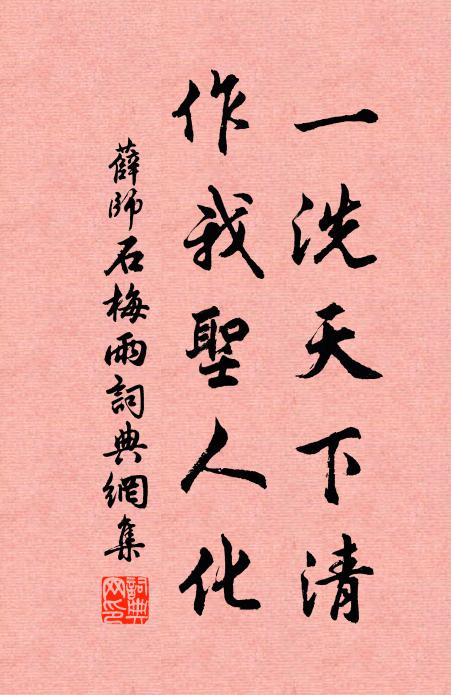 一洗天下清
作我聖人化
薛師石梅雨詞典網集
詞典網印